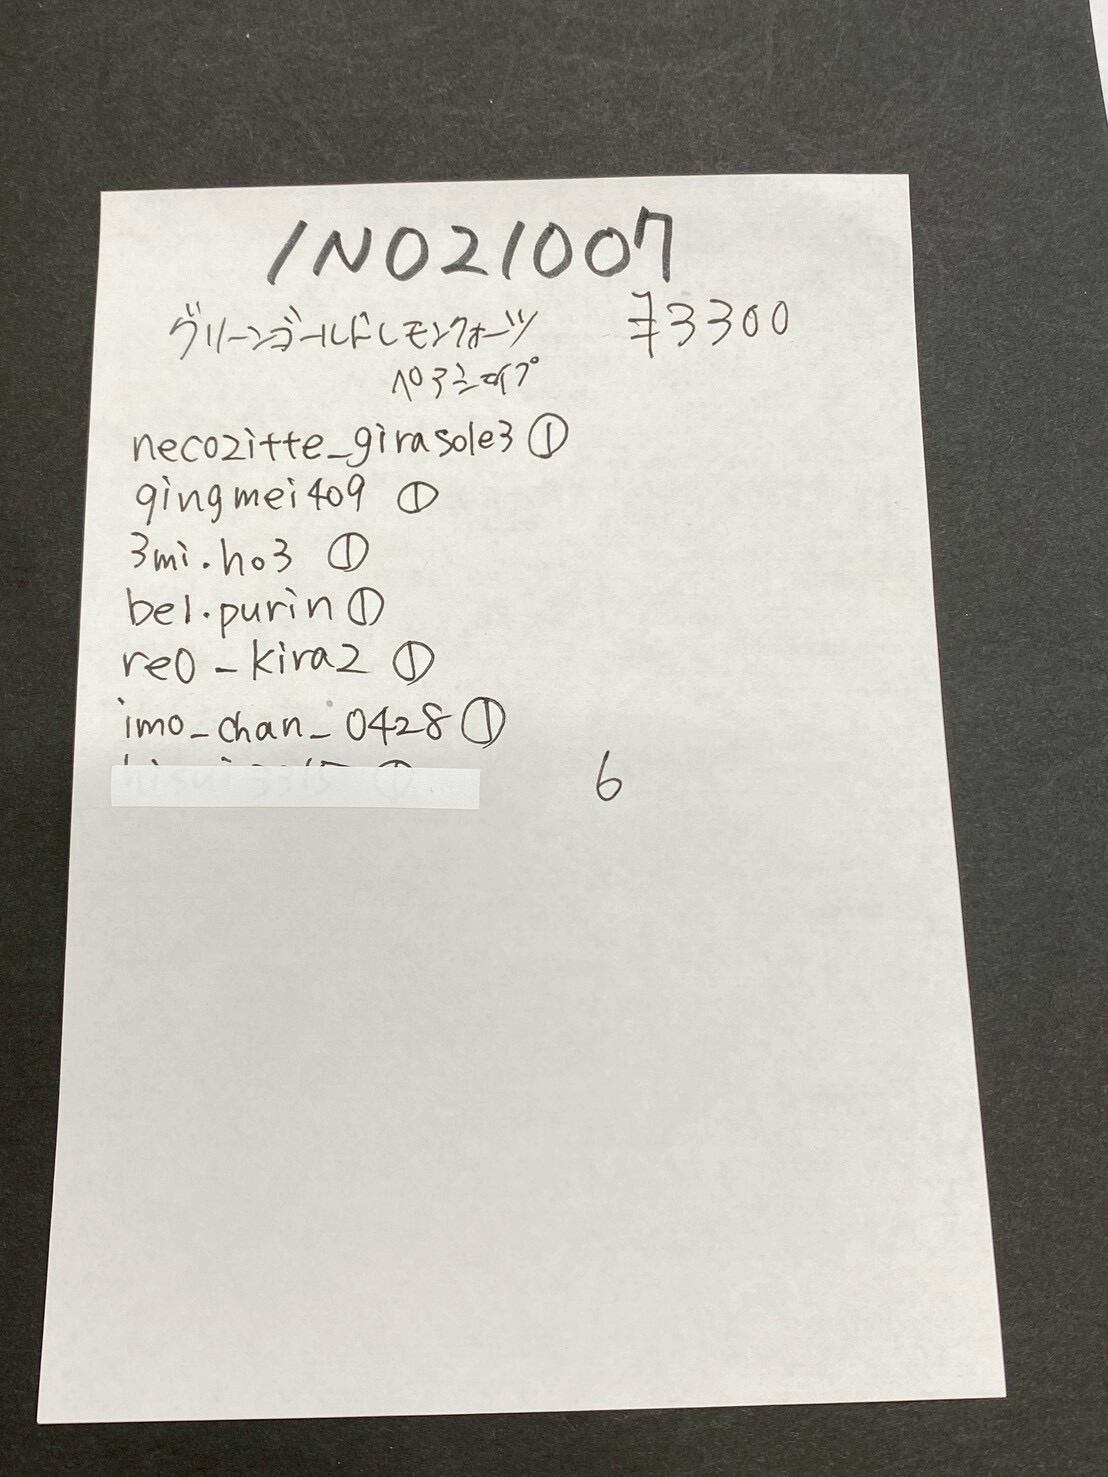 INO21007
グリーンゴールドレモンクォーツ ¥3300
ペアシェイプ
necozitte_girasole3 ①
qingmei409 ①
3mi.ho3 ①
bel.purin ①
re0_kira2 ①
imo_chan_0428 ①
6